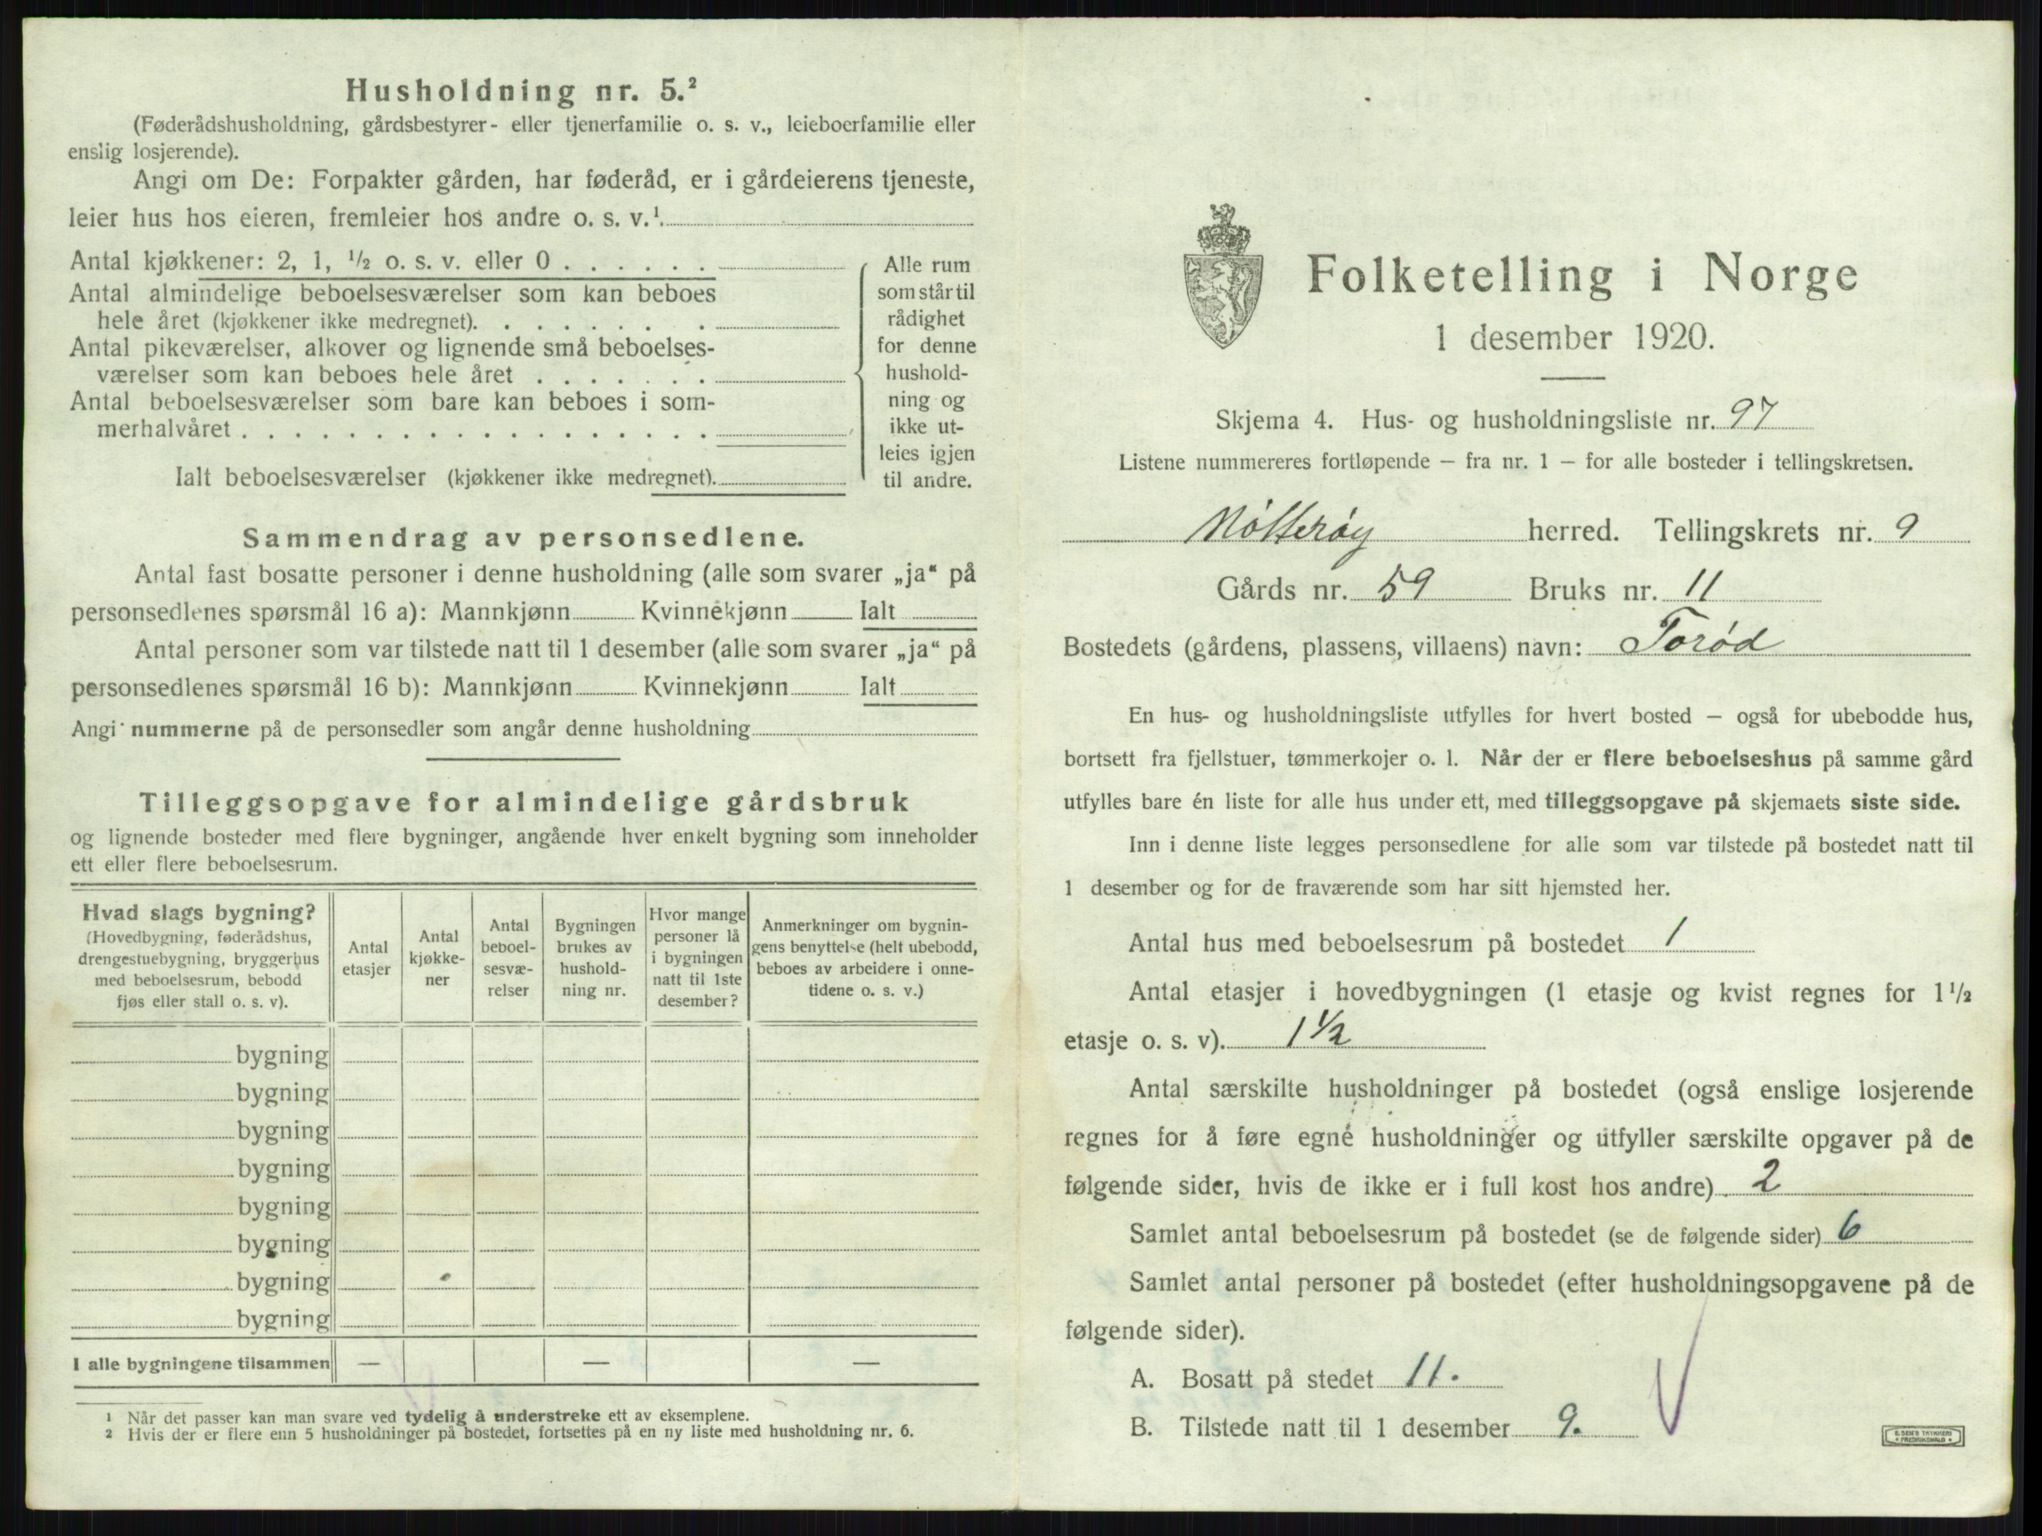 Husholdning nr. 5.²
(Føderådshusholdning, gårdsbestyrer- eller tjenerfamilie o. s. v., leieboerfamilie eller
enslig losjerende).
Angi om De: Forpakter gården, har føderåd, er i gårdeierens tjeneste,
leier hus hos eieren, fremleier hos andre o. s. v.¹.
Antal kjøkkener: 2, 1, ½ o. s. v. eller 0 . . . . . .
Antal almindelige beboelsesværelser som kan beboes
hele året (kjøkkener ikke medregnet). . . . . . . . .
Antal pikeværelser, alkover og lignende små beboelses-
værelser som kan beboes hele året . . . . . . .
Antal beboelsesværelser som bare kan beboes i som-
merhalvåret . . . . . . . . . . . . . . . . . .
Ialt beboelsesværelser (kjøkkener ikke medregnet).
Alle rum
som står til
rådighet
for denne
hushold-
ning og
ikke ut-
leies igjen
til andre.
Sammendrag av personsedlene.
Antal fast bosatte personer i denne husholdning (alle som svarer „ja“ på
personsedlenes spørsmål 16 a): Mannkjønn Kvinnekjønn Ialt
Antal personer som var tilstede natt til 1 desember (alle som svarer „ja“ på
personsedlenes spørsmål 16 b): Mannkjønn Kvinnekjønn Ialt
Angi nummerne på de personsedler som angår denne husholdning
Tilleggsopgave for almindelige gårdsbruk
og lignende bosteder med flere bygninger, angående hver enkelt bygning som inneholder
ett eller flere beboelsesrum.
Hvad slags bygning?
(Hovedbygning, føderådshus,
drengestuebygning, bryggerhus
med beboelsesrum, bebodd
fjøs eller stall o. s. v).
Antal
etasjer
Antal
kjøkke-
ner
Antal
beboel-
sesvæ-
relser
Bygningen
brukes av
hushold-
ning nr.
Hvor mange
personer lå
i bygningen
natt til 1ste
desember?
Anmerkninger om bygnin-
gens benyttelse (helt ubebodd,
beboes av arbeidere i onne-
tidene o. s. v.)
bygning
bygning
bygning
bygning
bygning
bygning
bygning
bygning
I alle bygningene tilsammen — — —
¹ Når det passer kan man svare ved tydelig å understreke ett av eksemplene.
² Hvis der er flere enn 5 husholdninger på bostedet, fortsettes på en ny liste med husholdning nr. 6.
Folketelling i Norge
1 desember 1920.
Skjema 4. Hus- og husholdningsliste nr. 97
Listene nummereres fortløpende – fra nr. 1 – for alle bosteder i tellingskretsen.
Nøtterøy herred. Tellingskrets nr. 9
Gårds nr. 59 Bruks nr. 11
Bostedets (gårdens, plassens, villaens) navn: Torød
En hus- og husholdningsliste utfylles for hvert bosted – også for ubebodde hus,
bortsett fra fjellstuer, tømmerkojer o. l. Når der er flere beboelseshus på samme gård
utfylles bare én liste for alle hus under ett, med tilleggsopgave på skjemaets siste side.
Inn i denne liste legges personsedlene for alle som var tilstede på bostedet natt til
1 desember og for de fraværende som har sitt hjemsted her.
Antal hus med beboelsesrum på bostedet 1
Antal etasjer i hovedbygningen (1 etasje og kvist regnes for 1½
etasje o. s. v). 1½
Antal særskilte husholdninger på bostedet (også enslige losjerende
regnes for å føre egne husholdninger og utfyller særskilte opgaver på de
følgende sider, hvis de ikke er i full kost hos andre) 2
Samlet antal beboelsesrum på bostedet (se de følgende sider) 6
Samlet antal personer på bostedet (efter husholdningsopgavene på de
følgende sider).
A. Bosatt på stedet 11.
B. Tilstede natt til 1 desember 9.